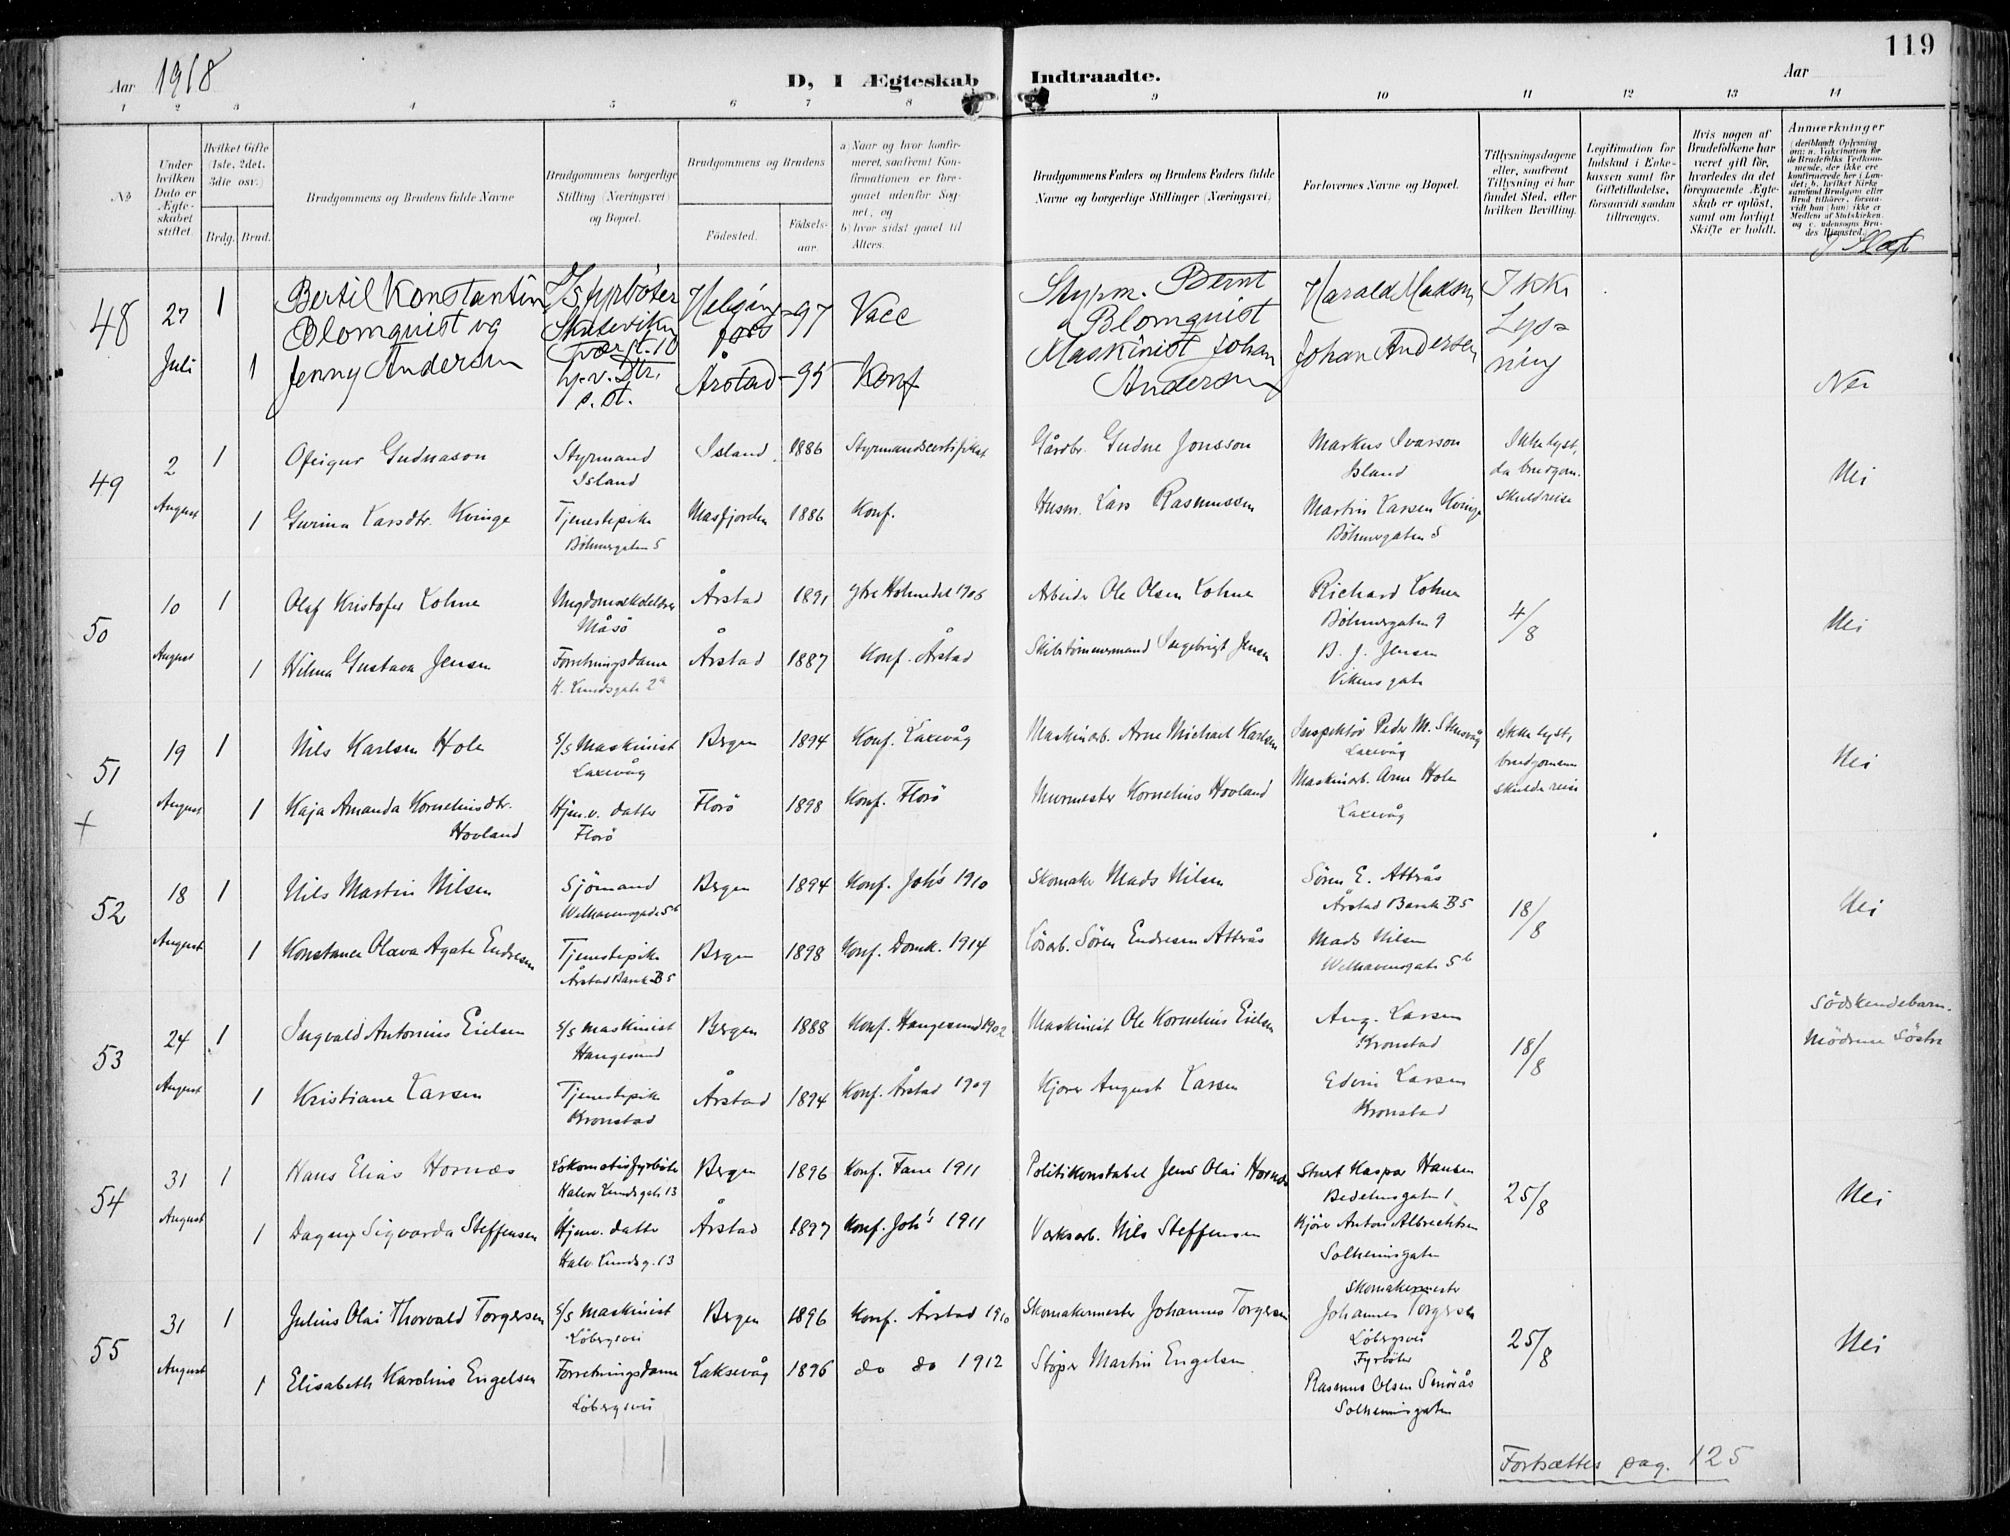 119
Aar 1918
D, I Ægteskab Indtraadte.
Aar
1 2 3 4 5 6 7 8 9 10 11 12 13 14
No
Under hvilken Dato er Ægteskabet stiftet.
Hvilket Gifte (1ste, 2det, 3die osv.)
Brdg. Brud.
Brudgommens og Brudens fulde Navne
Brudgommens borgerlige Stilling (Næringsvei) og Bopæl.
Brudgommens og Brudens
Fødested.
Fødselsaar.
a) Naar og hvor konfirmeret, saafremt Konfirmationen er foregaaet udenfor Sognet, og
b) hvor sidst gaaet til Alters.
Brudgommens Faders og Brudens Faders fulde Navne og borgerlige Stillinger (Næringsvei)
Forlovernes Navne og Bopæl.
Tillysningsdagene eller, saafremt Tillysning ei har fundet Sted, efter hvilken Bevilling.
Legitimation for Indskud i Enkekassen samt for Giftetilladelse, forsaavidt saadan tiltrænges.
Hvis nogen af Brudefolkene har været gift før, hvorledes da det foregaaende Ægteskab er opløst, samt om lovligt Skifte er holdt.
Anmærkninger (deriblandt Oplysning om: a. Vakcination for de Brudefolks Vedkommende, der ikke ere konfirmerede her i Landet; b. hvilket Kirkesamfund Brudgom eller Brud tilhører, forsaavidt han (hun) ikke er Medlem af Statskirken, og c. udensogns Brudes Hjemsted.)
I Slægt
48
27 Juli
1
Bertil Konstantin
Blomquist og
1
Jenny Andersen
S/s fyrbøter
Skuteviken
Tværgt. 10
hj. v. Dtr.
s. st.
Helsingfors
Årstad
-97
-95
Vacc
Konf
Styrm. Bernt
Blomquist
Maskinist Johan
Andersen
Harald Madsen
Johan Andersen
Ikke
Lysning
Nei
49
2 August
1
Ofeigur Gudnason
Styrmand
Island
Island
1886
Styrmandscertifikat
Gårdbr. Gudne Jonsson
Markus Ivarson
Island
Ikke lyst,
da brudgom.
skuld reise
Nei
1
Gurina Larsdtr. Kvinge
Tjenestepike
Böhmergaten 5
Masfjorden
1886
Konf.
Husm. Lars Rasmussen
Martin Larsen Kvinge
Böhmergaten 5
50
10 August
1
Olaf Kristofer Lohne
Ungdomsskolelærer
Måsö
Årstad
1891
ytre Holmedal 1906
Arbeider Ole Olsen Lohne
Richard Lohne
Böhmergaten 9
4/8
Nei
1
Hilma Gustava Jensen
Forretningsdame
H. Lundsgate 2a
Årstad
1887
Konf. Årstad
Skibstömmermand Ingebrigt Jensen
B. J. Jensen
Vikens gate
51
+
19 August
1
Nils Karlsen Hole
S/s Maskinist
Laxevåg
Bergen
1894
Konf. Laxevåg
Maskinarb. Arne Michael Karlsen
Inspektör Peder M. Stensvåg
Laxevåg
Ikke lyst,
brudgommen
skulde reise
Nei
1
Kaja Amanda Korneliusdtr.
Hovland
Hjem. v. datter
Florö
Florö
1898
Konf. Florö
Murmester Kornelius Hovland
Maskinarb. Arne Hole
Laxevåg
52
18 August
1
Nils Martin Nilsen
Sjömand
Welhavensgade 5b
Bergen
1894
Konf. Joh's 1910
Skomaker Mads Nilsen
Sören E. Attrås
Årstad Barak B 5
18/8
Nei
1
Konstance Olava Agate Endresen
Tjenestepike
Årstad Barak B 5
Bergen
1898
Konf. Domk. 1914
Lösarb. Sören Endresen Attrås
Mads Nilsen
Welhavensgate 5b
53
24 August
1
Ingvald Antonius Eielsen
S/s maskinist
Haugesund
Bergen
1888
Konf. Haugesund 1902
Maskinist Ole Kornelius Eielsen
Aug. Larsen
Kronstad
18/8
Södskendebarn.
Mödrene Söstre
1
Kristiane Larsen
Tjenestepike
Kronstad
Årstad
1894
Konf. Årstad 1909
Kjörer August Larsen
Edvin Larsen
Kronstad
54
31 August
1
Hans Elias Hornæs
Lokomotivfyrböter
Halvor Lundsgate 13
Bergen
1896
Konf. Fane 1911
Politikonstabel Jens Olai Hornæs
Stuert Kaspar Hansen
Bedehusgaten 1
25/8
Nei
1
Dagny Sigvarda Steffensen
Hjemv. datter
Halv. Lundsg. 13
Årstad
1897
Konf. Joh's 1911
Værksarb. Nils Steffensen
Kjörer Anton Albrechtsen
Solheimsgaten
55
31 August
1
Julius Olai Thorvald Torgersen
S/s maskinist
Löbergsvei
Bergen
1896
Konf. Årstad 1910
Skomakermester Johannes Torgersen
Skomakermester
Johannes Torgersen
Löbergsvei
25/8
Nei
1
Elisabeth Karoline Engelsen
Forretningsdame
Löbergsvei
Laksevåg
1896
do do 1912
Støper Martin Engelsen
Fyrböter
Rasmus Olsen Smörås
Solheimsgaten
Fortsættes pag. 125